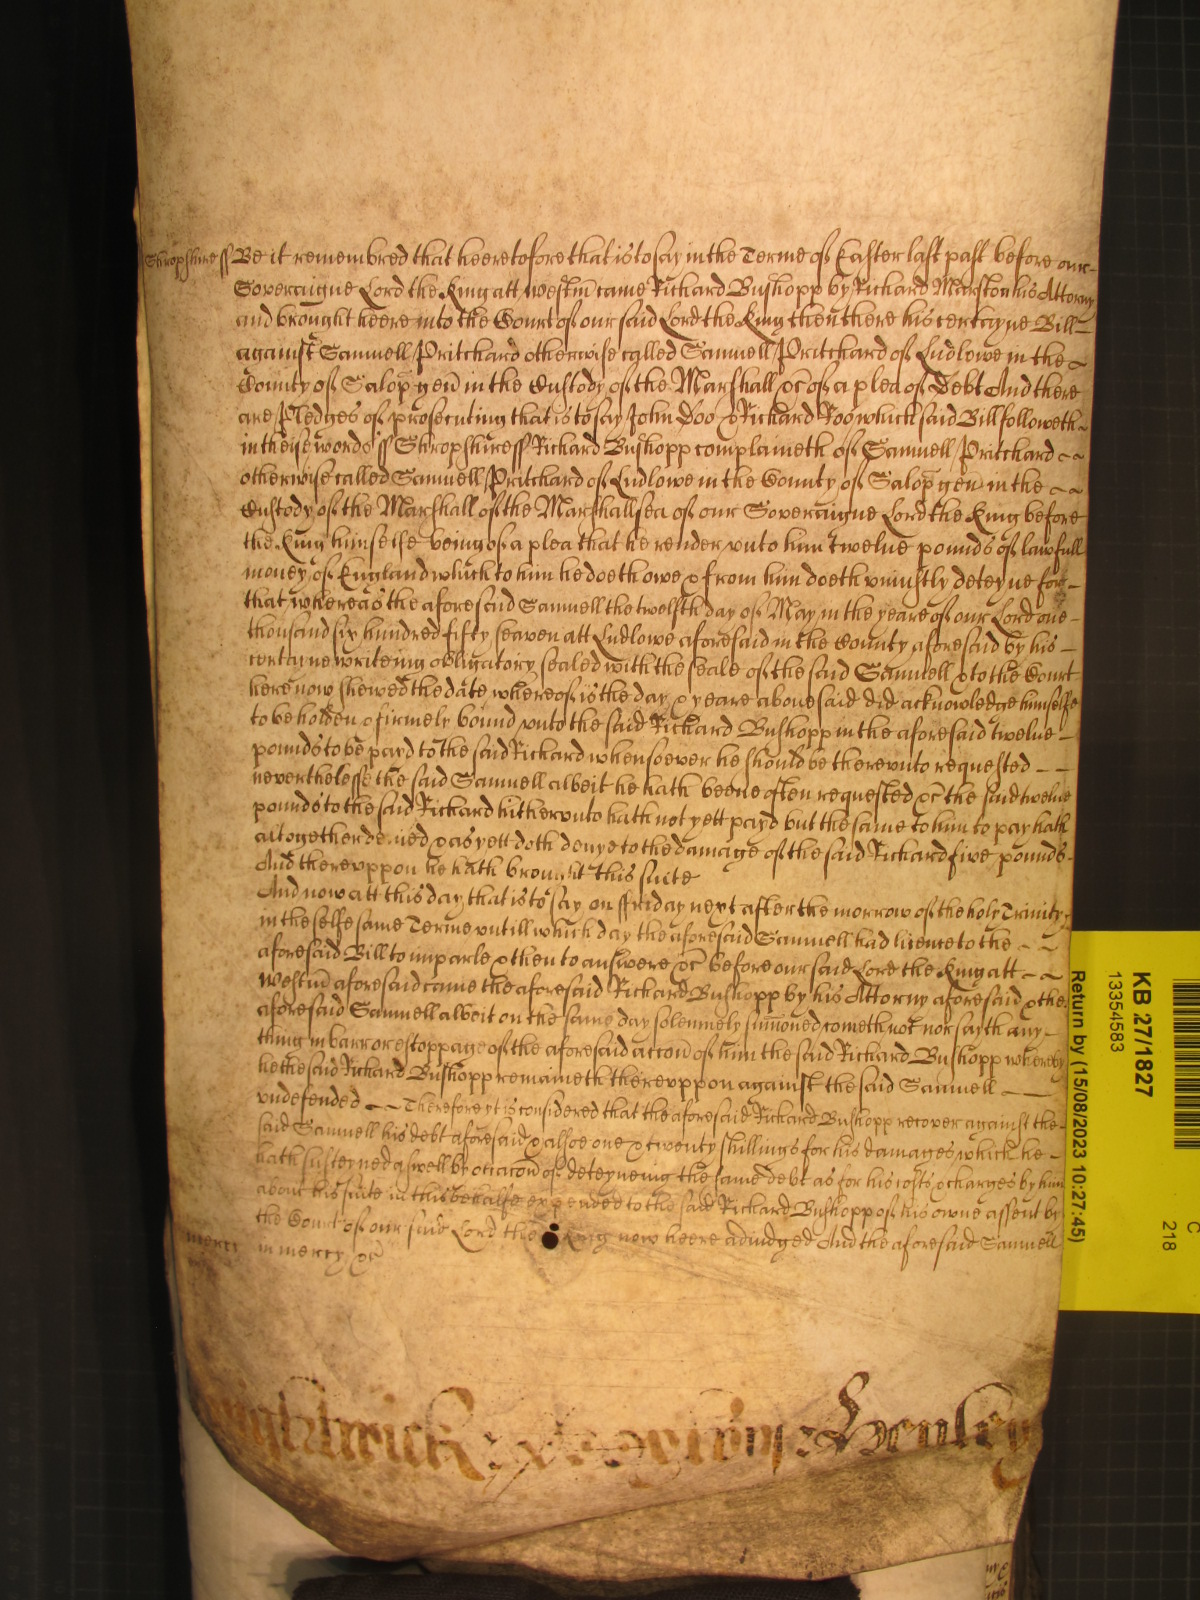 Shropshire ss Be it remembred that heeretofore that is to say in the Terme of Easter last past before our
Soveraigne Lord the King att Westm̄ came Richard Bushopp by Richard Marston his Attorny
and brought heere into the Court of our said Lord the King then there his certayne Bill
against Samuell Pritchard otherwise called Samuell Pritchard of Ludlowe in the
County of Salop gen̄ in the Custody of the Marshall &c̄ of a plea of Debt And there
are Pledges of prosecuting that is to say John Doo & Richard Roo which said Bill followeth
in theise words ss Shropshire ss Richard Bushopp complaineth of Samuell Pritchard
otherwise called Samuell Pritchard of Ludlowe in the County of Salop gen̄ in the
Custody of the Marshall of the Marshallsea of our Soveraigne Lord the King before
the King himselfe being of a plea that he render unto him twelve pounds of lawfull
money of England which to him he doeth owe & from him doeth uniustly deteyne for
that whereas the aforesaid Samuell the twelfth day of May in the yeare of our Lord one
thousand six hundred fifty seaven att Ludlowe aforesaid in the County aforesaid by his
certayne writeing obligatory sealed with the seale of the said Samuell & to the Court
here now shewed the date whereof is the day & yeare abovesaid did acknowledge himselfe
to be holden & firmely bound unto the said Richard Bushopp in the aforesaid twelve
pounds to be payd to the said Richard whensoever he should be thereunto requested
neverthelesse the said Samuell albeit he hath beene often requested &c̄ the said twelve
pounds to the said Richard hitherunto hath not yett payd but the same to him to pay hath
altogether denied & as yett doth denye to the damage of the said Richard five pounds
And thereuppon he hath brought this suite
And now att this day that is to say on ffriday next after the morrow of the holy Trinity
in the selfe same Terme untill which day the aforesaid Samuell had licence to the
aforesaid Bill to imparle & then to answere &c̄ before our said Lord the King att
Westm̄ aforesaid came the aforesaid Richard Bushopp by his Attorny aforesaid & the
aforesaid Samuell albeit on the same day solemnely sum̄oned cometh not nor sayth any
thing in barr or estoppage of the aforesaid accon̄ of him the said Richard Bushopp whereby
he the said Richard Bushopp remaineth thereuppon against the said Samuell
undefended Therefore yt is considered that the aforesaid Richard Bushopp recover against the
said Samuell his debt aforesaid & allsoe one & twenty shillings for his damages which he
hath susteyned aswell by occacon̄ of deteyneing the same debt as for his costs & charges by him
about his suite in this behalfe expended to the said Richard Bushopp of his owne assent by
the Court of our said Lord the King now heere adiudged And the aforesaid Samuell
mercy in mercy &c̄
Henley
KB 27/1827
13354583
Return by (15/08/2023 10:27:45)
C
218